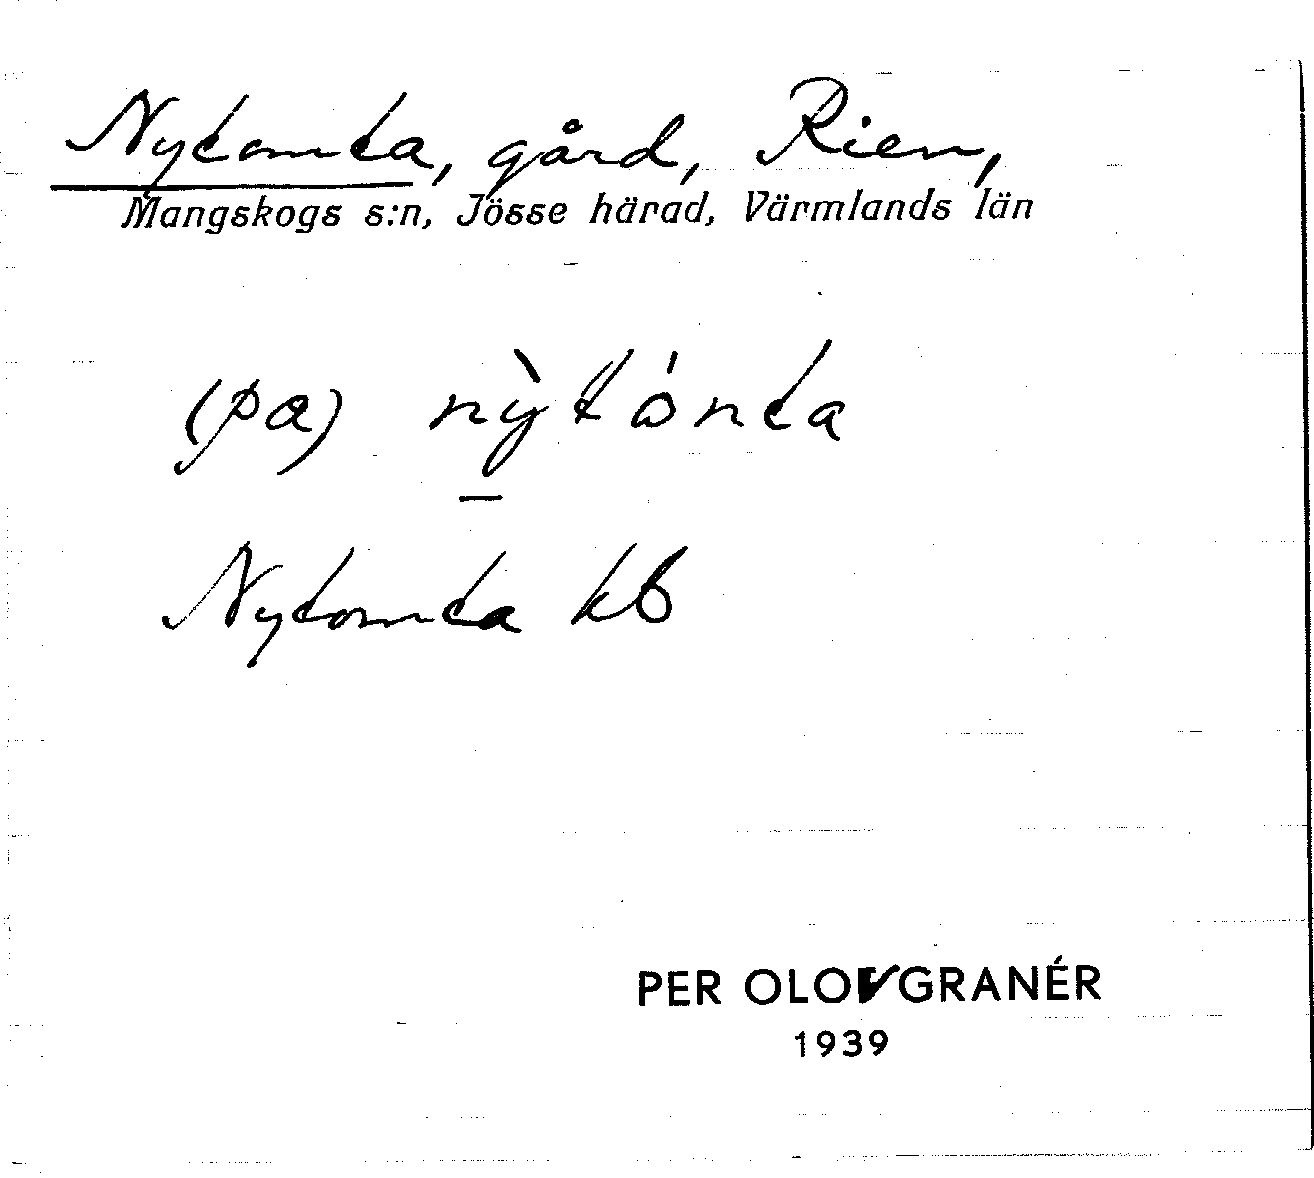 Nytomta, gård, Rien,
Mangskogs s:n, Jösse härad, Värmlands län
(pa) nỳ̱tώnta
Nytomta kb
PER OLOV GRANÉR
1939